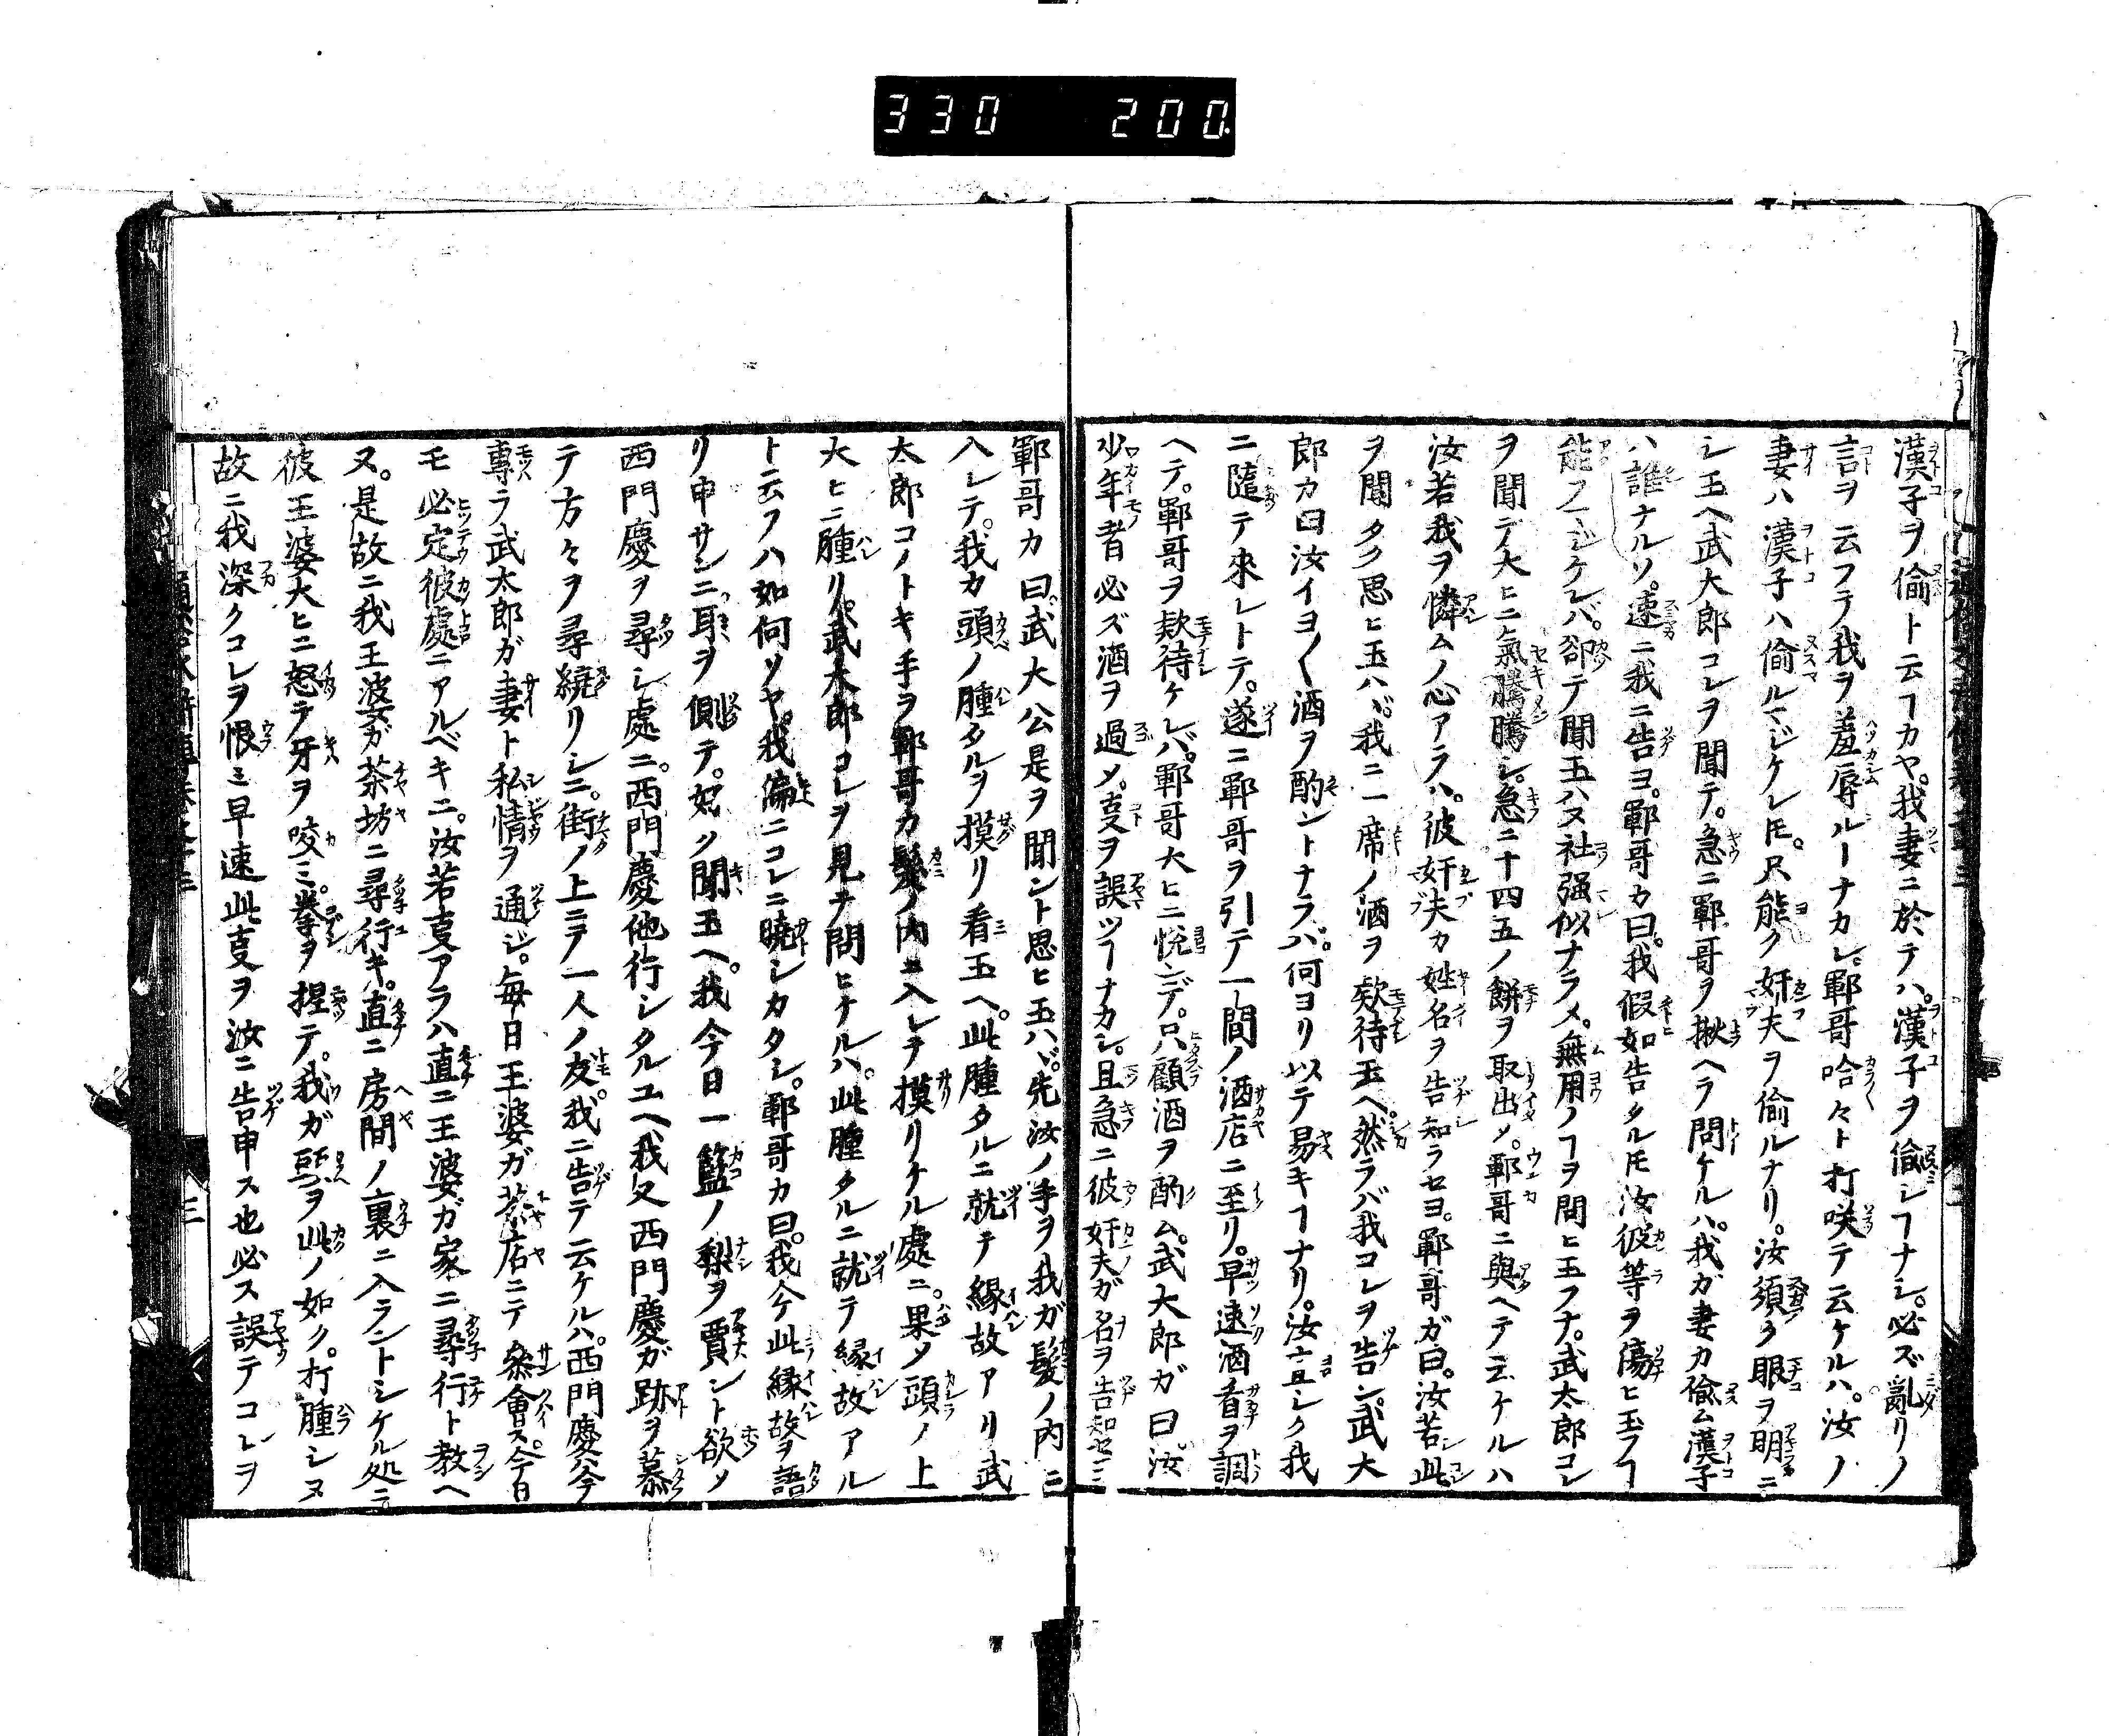 330 200
漢子ヲ偷ト云フカヤ。我妻ニ於テハ。漢子ヲ偷レヿナシ。必ズ亂リノ
言ヲ云フテ我ヲ羞辱ルーナカレ。鄆哥哈々ト打咲テ云ケルハ。汝ノ
妻ハ漢子ハ偷ルマジケレ𪜈。只能ク奸夫ヲ偷ルナリ。汝須ク眼ヲ明ニ
シ玉ヘ武大郎コレヲ聞テ。急ニ鄆哥ヲ揪ヘテ問ケルハ。我ガ妻カ偷ム漢子
ハ誰ナルソ。速ニ我ニ告ヨ。鄆哥カ曰。我假如告タル𪜈汝彼等ヲ蕩ヒ玉フヿ
能フマジケレバ。却テ聞玉ハヌ社强似ナラメ。無用ノヿヲ問ヒ玉フナ。武太郎コレ
ヲ聞テ大ヒニ氣騰騰シ。急ニ十四五ノ餅ヲ取出メ。鄆哥ニ與ヘテ云ケルハ
汝若我ヲ憐ムノ心アラハ。彼奸夫カ姓名ヲ告知ラセヨ。鄆哥ガ曰。汝若此
ヲ聞タク思ヒ玉ハバ。我ニ一席ノ酒ヲ欵待玉ヘ。然ラバ我コレヲ告ン。武大
郎カ曰汝イヨ〱酒ヲ酌ントナラバ。何ヨリ以テ易キヿナリ。汝宜シク我
ニ隨テ來レトテ。遂ニ鄆哥ヲ引テ一間ノ酒店ニ至リ。早速酒肴ヲ調
ヘテ。鄆哥ヲ欵待ケレバ。鄆哥大ヒニ悅ンデ。只顧酒ヲ酌ム。武大郎ガ曰汝
少年者必ズ酒ヲ過メ。叓ヲ誤ツーナカレ。且急ニ彼奸夫ガ名ヲ告知セヨ
鄆哥カ曰。武大公是ヲ聞ント思ヒ玉ハヾ。先汝ノ手ヲ我ガ髮ノ内ニ
入レテ。我カ頭ノ腫タルヲ摸リ看玉ヘ。此腫タルニ就テ緣故アリ武
太郎コノトキ手ヲ鄆哥カ髮ノ内ニ入レテ摸リケル處ニ。果メ頭ノ上
大ヒニ腫リ。武太郎コレヲ見テ問ヒケルハ。此腫タルニ就テ緣故アル
ト云フハ如何ソヤ。我偏ニコレニ曉シカタシ。鄆哥カ曰。我今此緣故ヲ語
リ申サンニ。耳ヲ側テ。好ク聞玉ヘ。我今日一籃ノ梨ヲ賈ント欲メ
西門慶ヲ尋シ處ニ。西門慶他行シタルユヘ我又西門慶ガ跡ヲ慕
テ方々ヲ尋繞リシニ。街ノ上ニテ一人ノ友。我ニ告テ云ケルハ。西門慶ハ今
專ラ武太郎ガ妻ト私情ヲ通ジ。每日王婆ガ茶店ニテ參會ス。今日
モ必定彼處ニアルベキニ。汝若叓アラハ直ニ王婆ガ家ニ尋行ト教ヘ
ヌ。是故ニ我王婆ガ茶坊ニ尋行キ。直ニ房間ノ裏ニ入ラントシケル処ニ
彼王婆大ヒニ怒テ牙ヲ咬ミ。拳ヲ捏テ。我ガ頭ヲ此ノ如ク。打腫シヌ
故ニ我深クコレヲ恨ミ早速此叓ヲ汝ニ告申ス也必ス誤テコレヲ
三